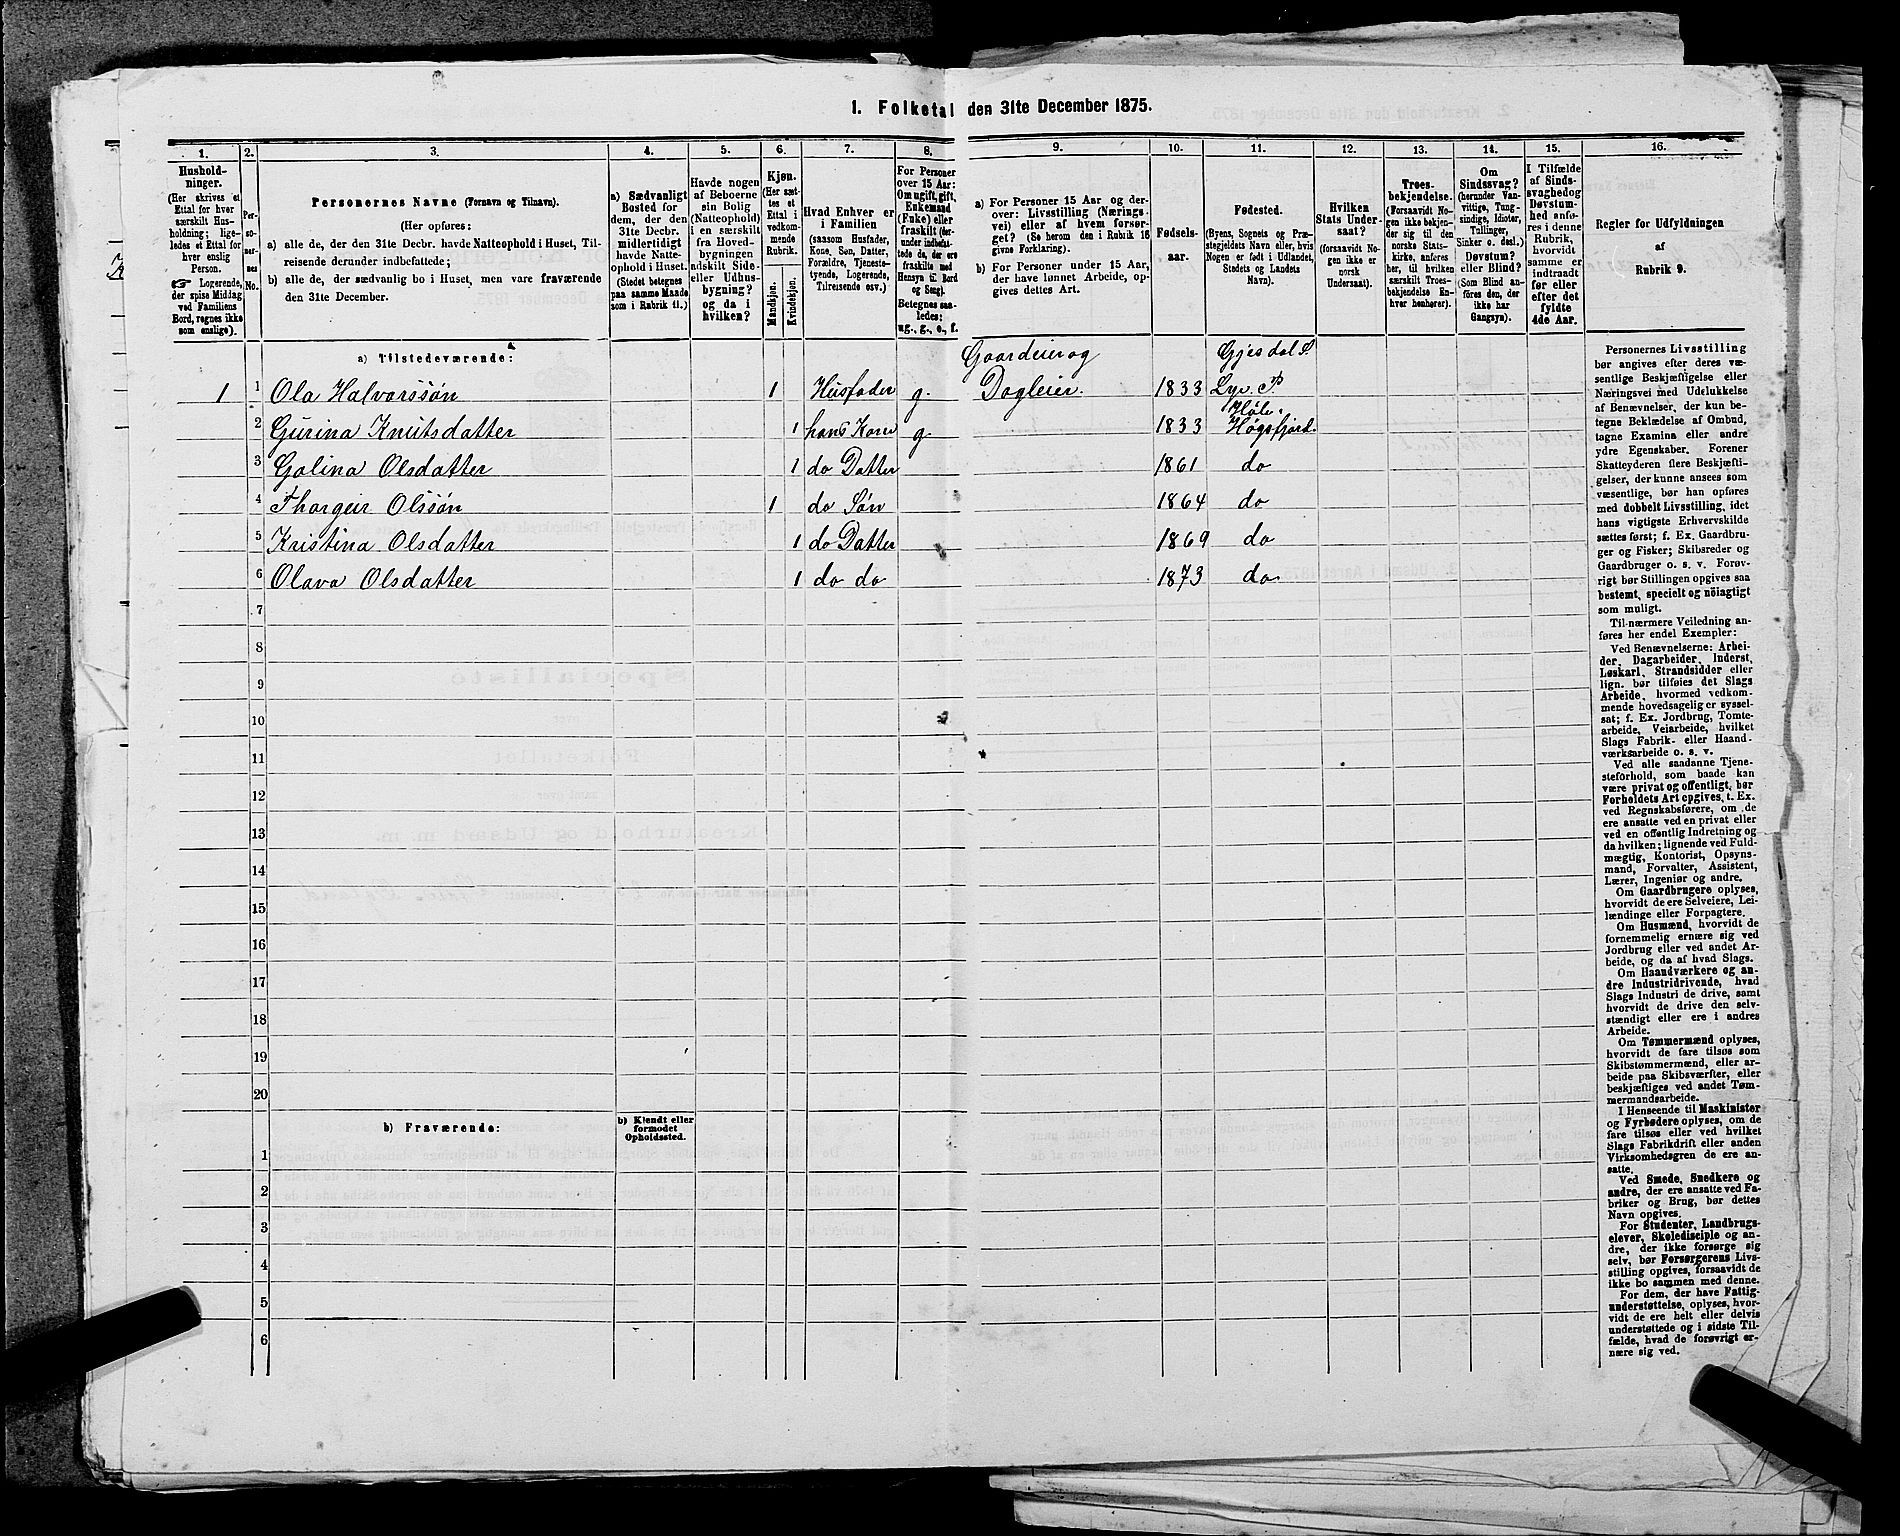 1. Folketal den 31te December 1875.
1.
Hushold-
ninger.
(Her skrives et
Ettal for hver
særskilt Hus-
holdning; lige-
ledes et Ettal for
hver enslig
Person.
☞ Logerende,
der spise Middag
ved Familiens
Bord, regnes ikke
som enslige).
2.
Per-
so-
ner-
nes
No.
3.
Personernes Navne (Fornavn og Tilnavn).
(Her opføres:
a) alle de, der den 31te Decbr. havde Natteophold i Huset, Til-
reisende derunder indbefattede;
b) alle de, der sædvanlig bo i Huset, men vare fraværende
den 31te December.
4.
a) Sædvanligt
Bosted for
dem, der den
31te Decbr.
midlertidigt
havde Natte-
ophold i Huset.
(Stedet betegnes
paa samme Maade
som i Rubrik 11.)
5.
Havde nogen
af Beboerne
sin Bolig
(Natteophold)
i en særskilt
fra Hoved-
bygningen
adskilt Side-
eller Udhus-
bygning?
og da i
hvilken?
6.
Kjøn.
(Her sæt-
tes et
Ettal i
vedkom-
mende
Rubrik.
Mandkjøn.
Kvindekjøn.
7.
Hvad Enhver er
i Familien
(saasom Husfader,
Kone, Søn, Datter,
Forældre, Tjeneste-
tyende, Logerende,
Tilreisende osv.)
8.
For Personer
over 15 Aar:
Om ugift, gift,
Enkemand
(Enke) eller
fraskilt (der-
under indbefat-
tede de, der ere
fraskilte med
Hensyn til Bord
og Seng).
Betegnes saa-
ledes:
ug., g., e., f.
9.
a) For Personer 15 Aar og der-
over: Livsstilling (Nærings-
vei) eller af hvem forsør-
get? (Se herom den i Rubrik 16
givne Forklaring).
b) For Personer under 15 Aar,
der have lønnet Arbeide, op-
gives dettes Art.
10.
Fødsels-
aar.
11.
Fødested.
(Byens, Sognets og Præ-
stegjeldets Navn eller, hvis
Nogen er født i Udlandet,
Stedets og Landets
Navn).
12.
Hvilken
Stats Under-
saat?
(forsaavidt No-
gen ikke er
norsk
Undersaat).
13.
Troes-
bekjendelse.
(Forsaavidt No-
gen ikke bekjen-
der sig til den
norske Stats-
kirke, anføres
her, til hvilken
særskilt Troes-
bekjendelse En-
hver henhører).
14.
Om
Sindssvag?
(herunder Van-
vittige, Tung-
sindige, Idioter,
Tullinger,
Sinker o. desl.)
Døvstum?
eller Blind?
(Som Blind an-
føres den, der
ikke har
Gangsyn).
15.
I Tilfælde
af Sinds-
svaghed og
Døvstum-
hed anfø-
res i denne
Rubrik,
hvorvidt
samme er
indtraadt
før eller
efter det
fyldte
4de Aar.
16.
Regler for Udfyldningen
af
Rubrik 9.
a) Tilstedeværende:
Gaardeier og
Gjesdal S.
1 1 Ola Halvorssøn 1 Husfader g. Dagleier. 1833 Lye P.
Høle
2 Gurina Knutsdatter 1 hans Kone g. 1833 Høgsfjord.
3 Golina Olsdatter 1 do Datter 1861 do
4 Thorgeir Olssøn 1 do Søn 1864 do
5 Kristina Olsdatter 1 do Datter 1869 do
6 Olava Olsdatter 1 do do 1873 do
7
8
9
10
11
12
13
14
15
16
17
18
19
20
b) Fraværende:
b) Kjendt eller
formodet
Opholdssted.
1
2
3
4
5
6
Personernes Livsstilling
bør angives efter deres væ-
sentlige Beskjæftigelse eller
Næringsvei med Udelukkelse
af Benævnelser, der kun be-
tegne Beklædelse af Ombud,
tagne Examina eller andre
ydre Egenskaber. Forener
Skatteyderen flere Beskjæfti-
gelser, der kunne ansees som
væsentlige, bør han opføres
med dobbelt Livsstilling, idet
hans vigtigste Erhvervskilde
sættes først; f. Ex. Gaardbru-
ger og Fisker; Skibsreder og
Gaardbruger o. s. v. Forøv-
rigt bør Stillingen opgives saa
bestemt, specielt og nöiagtigt
som muligt.
Til nærmere Veiledning an-
føres her endel Exempler:
Ved Benævnelserne: Arbei-
der, Dagarbeider, Inderst,
Løskarl, Strandsidder eller
lign. bør tilføies det Slags
Arbeide, hvormed vedkom-
mende hovedsagelig er syssel-
sat; f. Ex. Jordbrug, Tomte-
arbeide, Veiarbeide, hvilket
Slags Fabrik- eller Haand-
værksarbeide o. s. v.
Ved alle saadanne Tjene-
steforhold, som baade kan
være privat og offentligt, bør
Forholdets Art opgives, t. Ex.
ved Regnskabsførere, om de
ere ansatte ved en privat eller
ved en offentlig Indretning og
da hvilken; lignende ved Fuld-
mægtig, Kontorist, Opsyns-
mand, Forvalter, Assistent,
Lærer, Ingeniør og andre.
Om Gaardbrugere oplyses,
hvorvidt de ere Selveiere, Lei-
lændinge eller Forpagtere.
Om Husmænd, hvorvidt de
fornemmelig ernære sig ved
Jordbrug eller ved andet Ar-
beide, og da af hvad Slags.
Om Haandværkere og an-
dre Industridrivende, hvad
Slags Industri de drive, samt
hvorvidt de drive den selv-
stændigt eller ere i andres
Arbeide.
Om Tømmermænd oplyses,
hvorvidt de fare tilsøs som
Skibstømmermænd, eller ar-
beide paa Skibsværfter, eller
beskjæftiges ved andet Tøm-
mermandsarbeide.
I Henseende til Maskinister
og Fyrbødere oplyses, om de
fare tilsøs eller ved hvilket
Slags Fabrikdrift eller anden
Virksomhedsgren de ere an-
satte.
Ved Smede, Snedkere og
andre, der ere ansatte ved Fa-
briker og Brug, bør dettes
Navn opgives.
For Studenter, Landbrugs-
elever, Skoledisciple og an-
dre, der ikke forsørge sig
selv, bør Forsørgerens Livs-
stilling opgives, forsaavidt de
ikke bo sammen med denne.
For dem, der have Fattig-
understøttelse, oplyses, hvor-
vidt de ere helt eller delvis
understøttede og i sidste Til-
fælde, hvad de forøvrigt er-
nære sig ved.